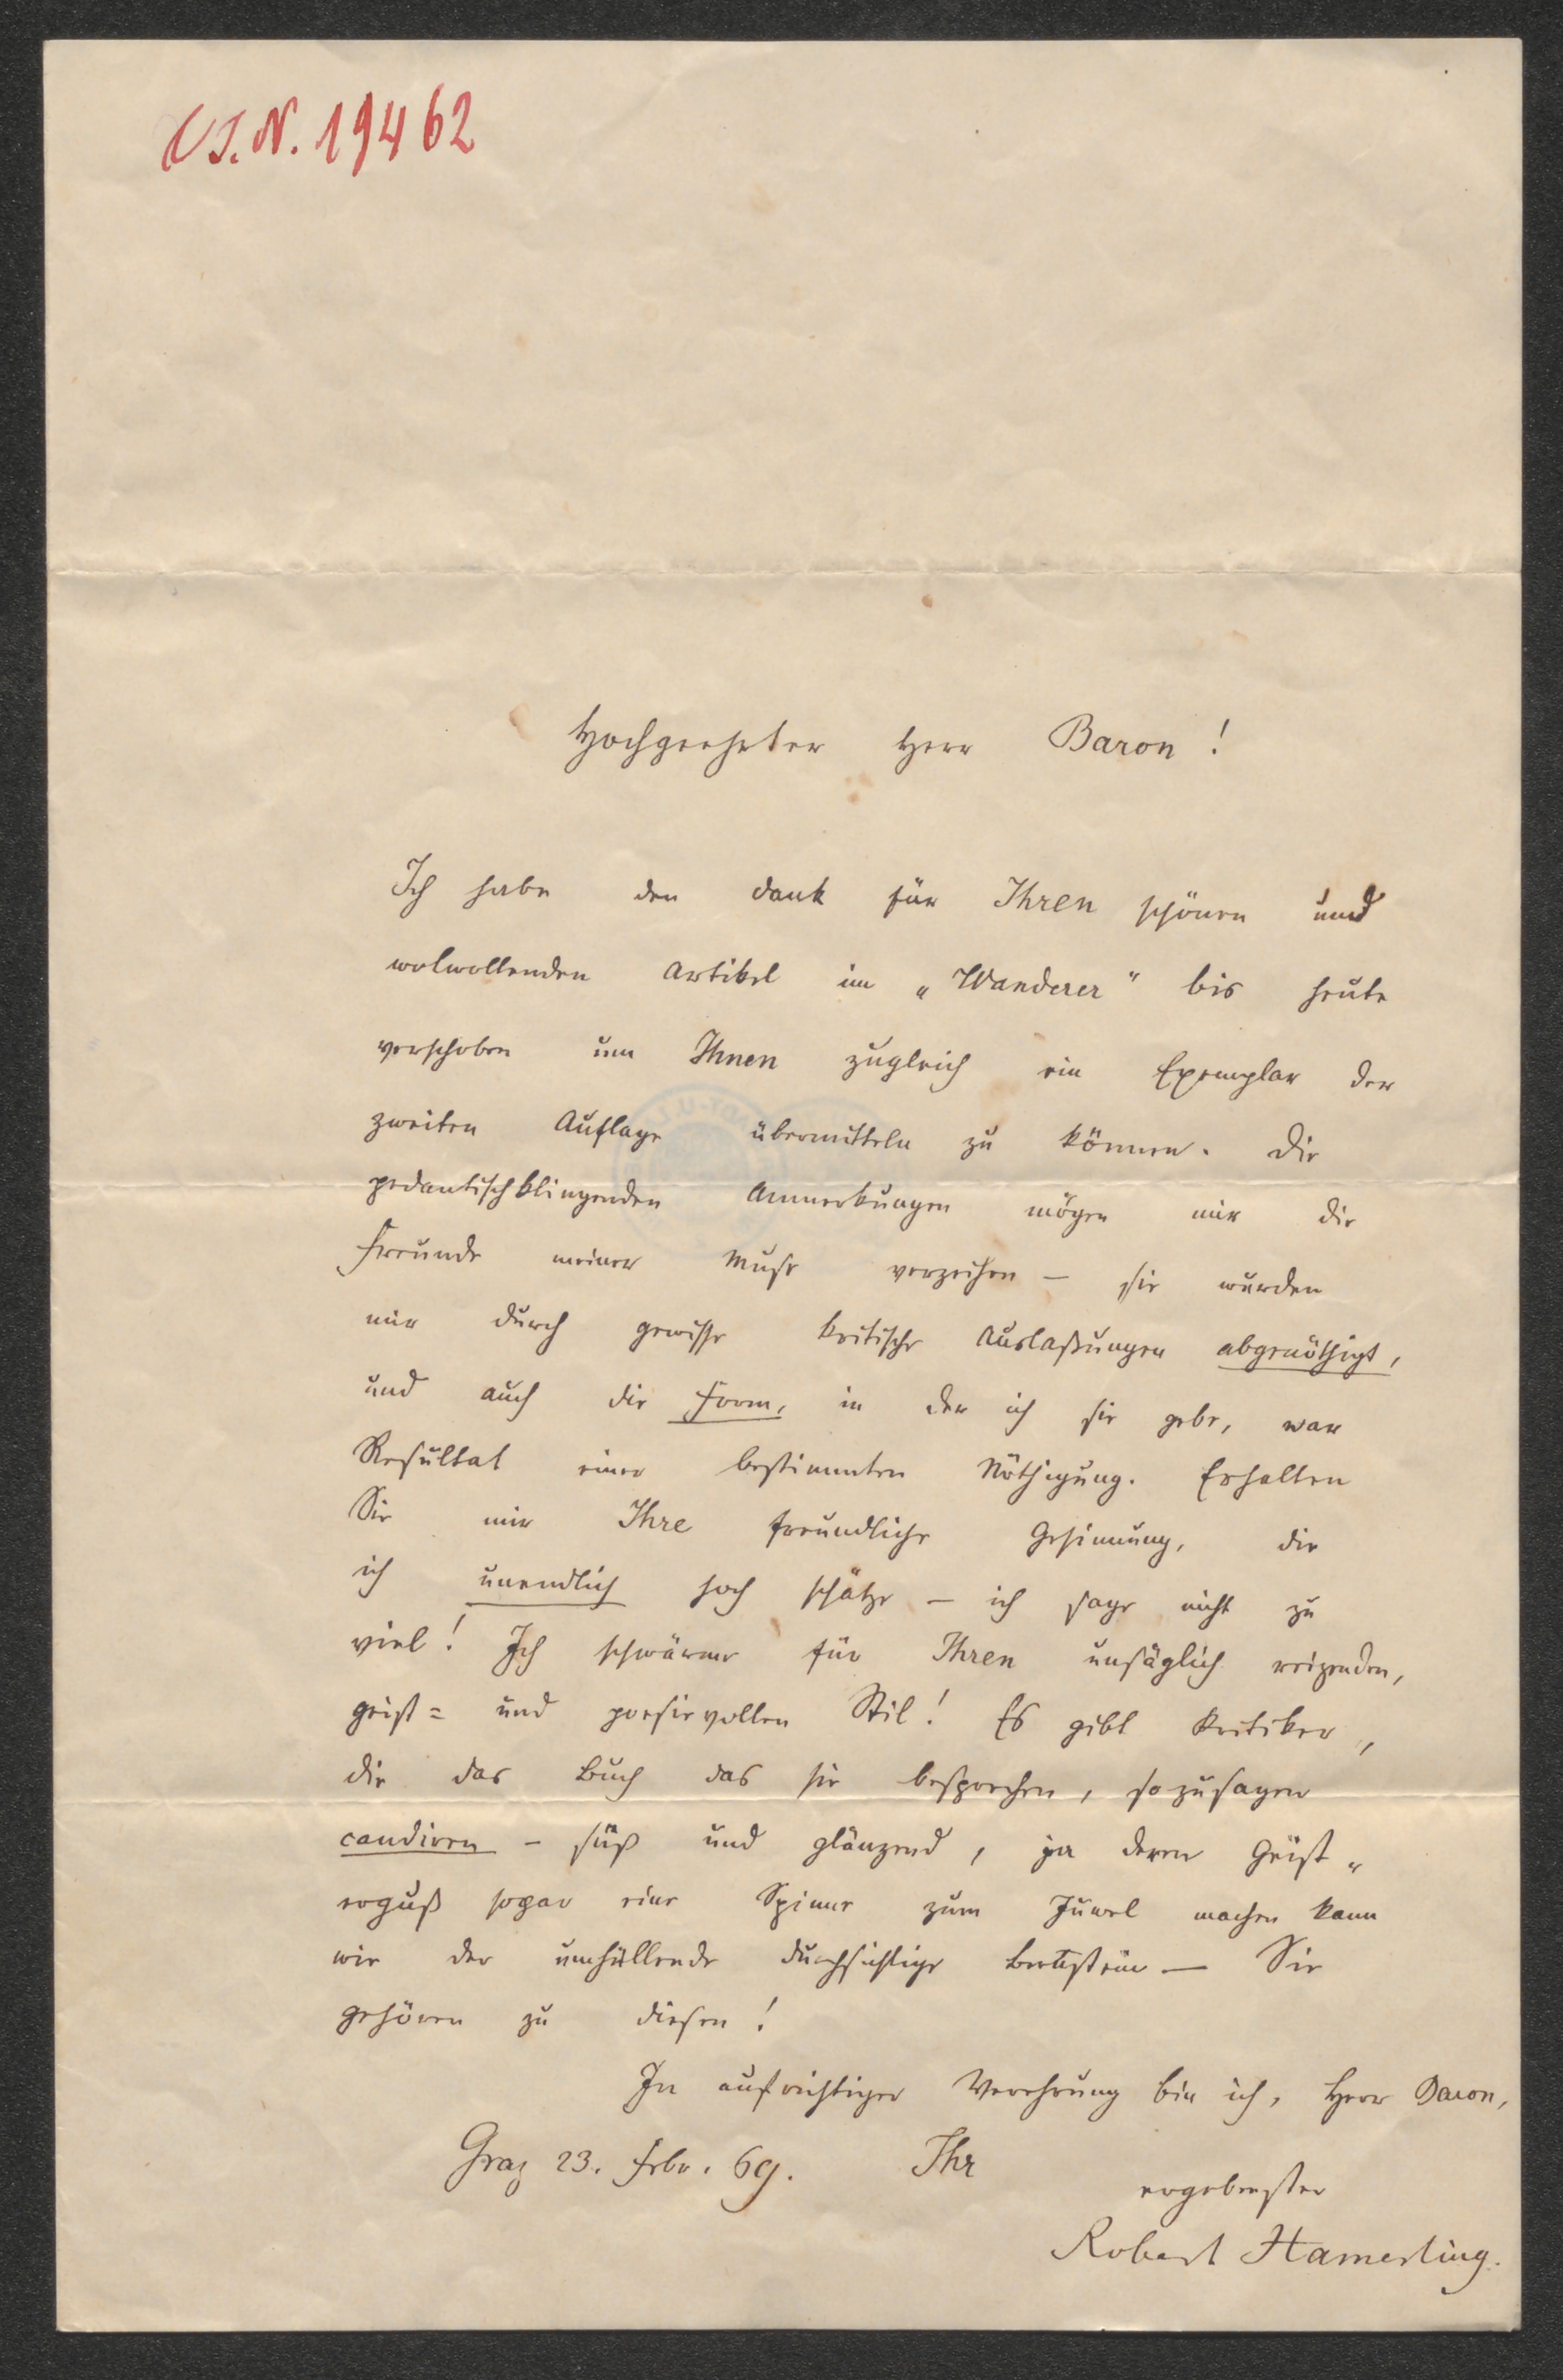 I.N. 19462
Hochgeehrter Herr Baron!
Ich habe den Dank für Ihren schönen und
wolwollenden Artikel im „Wanderer" bis heute
verschoben um Ihnen zugleich ein Exemplar der
zweiten Auflage übermitteln zu können. Die
pedantisch klingenden Anmerkungen mögen mir die
Freunde meiner Muse verzeihen – sie wurden
mir durch gewisse kritische Auslaßungen abgenöthigt,
und auch die Form, in der ich sie gebe, war
Resultat einer bestimmten Nöthigung. Erhalten
Sie mir Ihre freundliche Gesinnung, die
ich unendlich hoch schätze – ich sage nicht zu
viel! Ich schwärme für Ihren unsäglich reizenden,
geist= und poesievollen Stil! Es gibt Kritiker,
die das Buch das sie besprechen, sozusagen
candiren – süß und glänzend, ja deren Geist„
erguß sogar eine Spinne zum Juwel machen kann
wie der umhüllende durchsichtige Bernstein – Sie
gehören zu diesen!
In aufrichtiger Verehrung bin ich, Herr Baron,
Graz 23. Febr. 69. Ihr
ergebenster
Robert Hamerling.